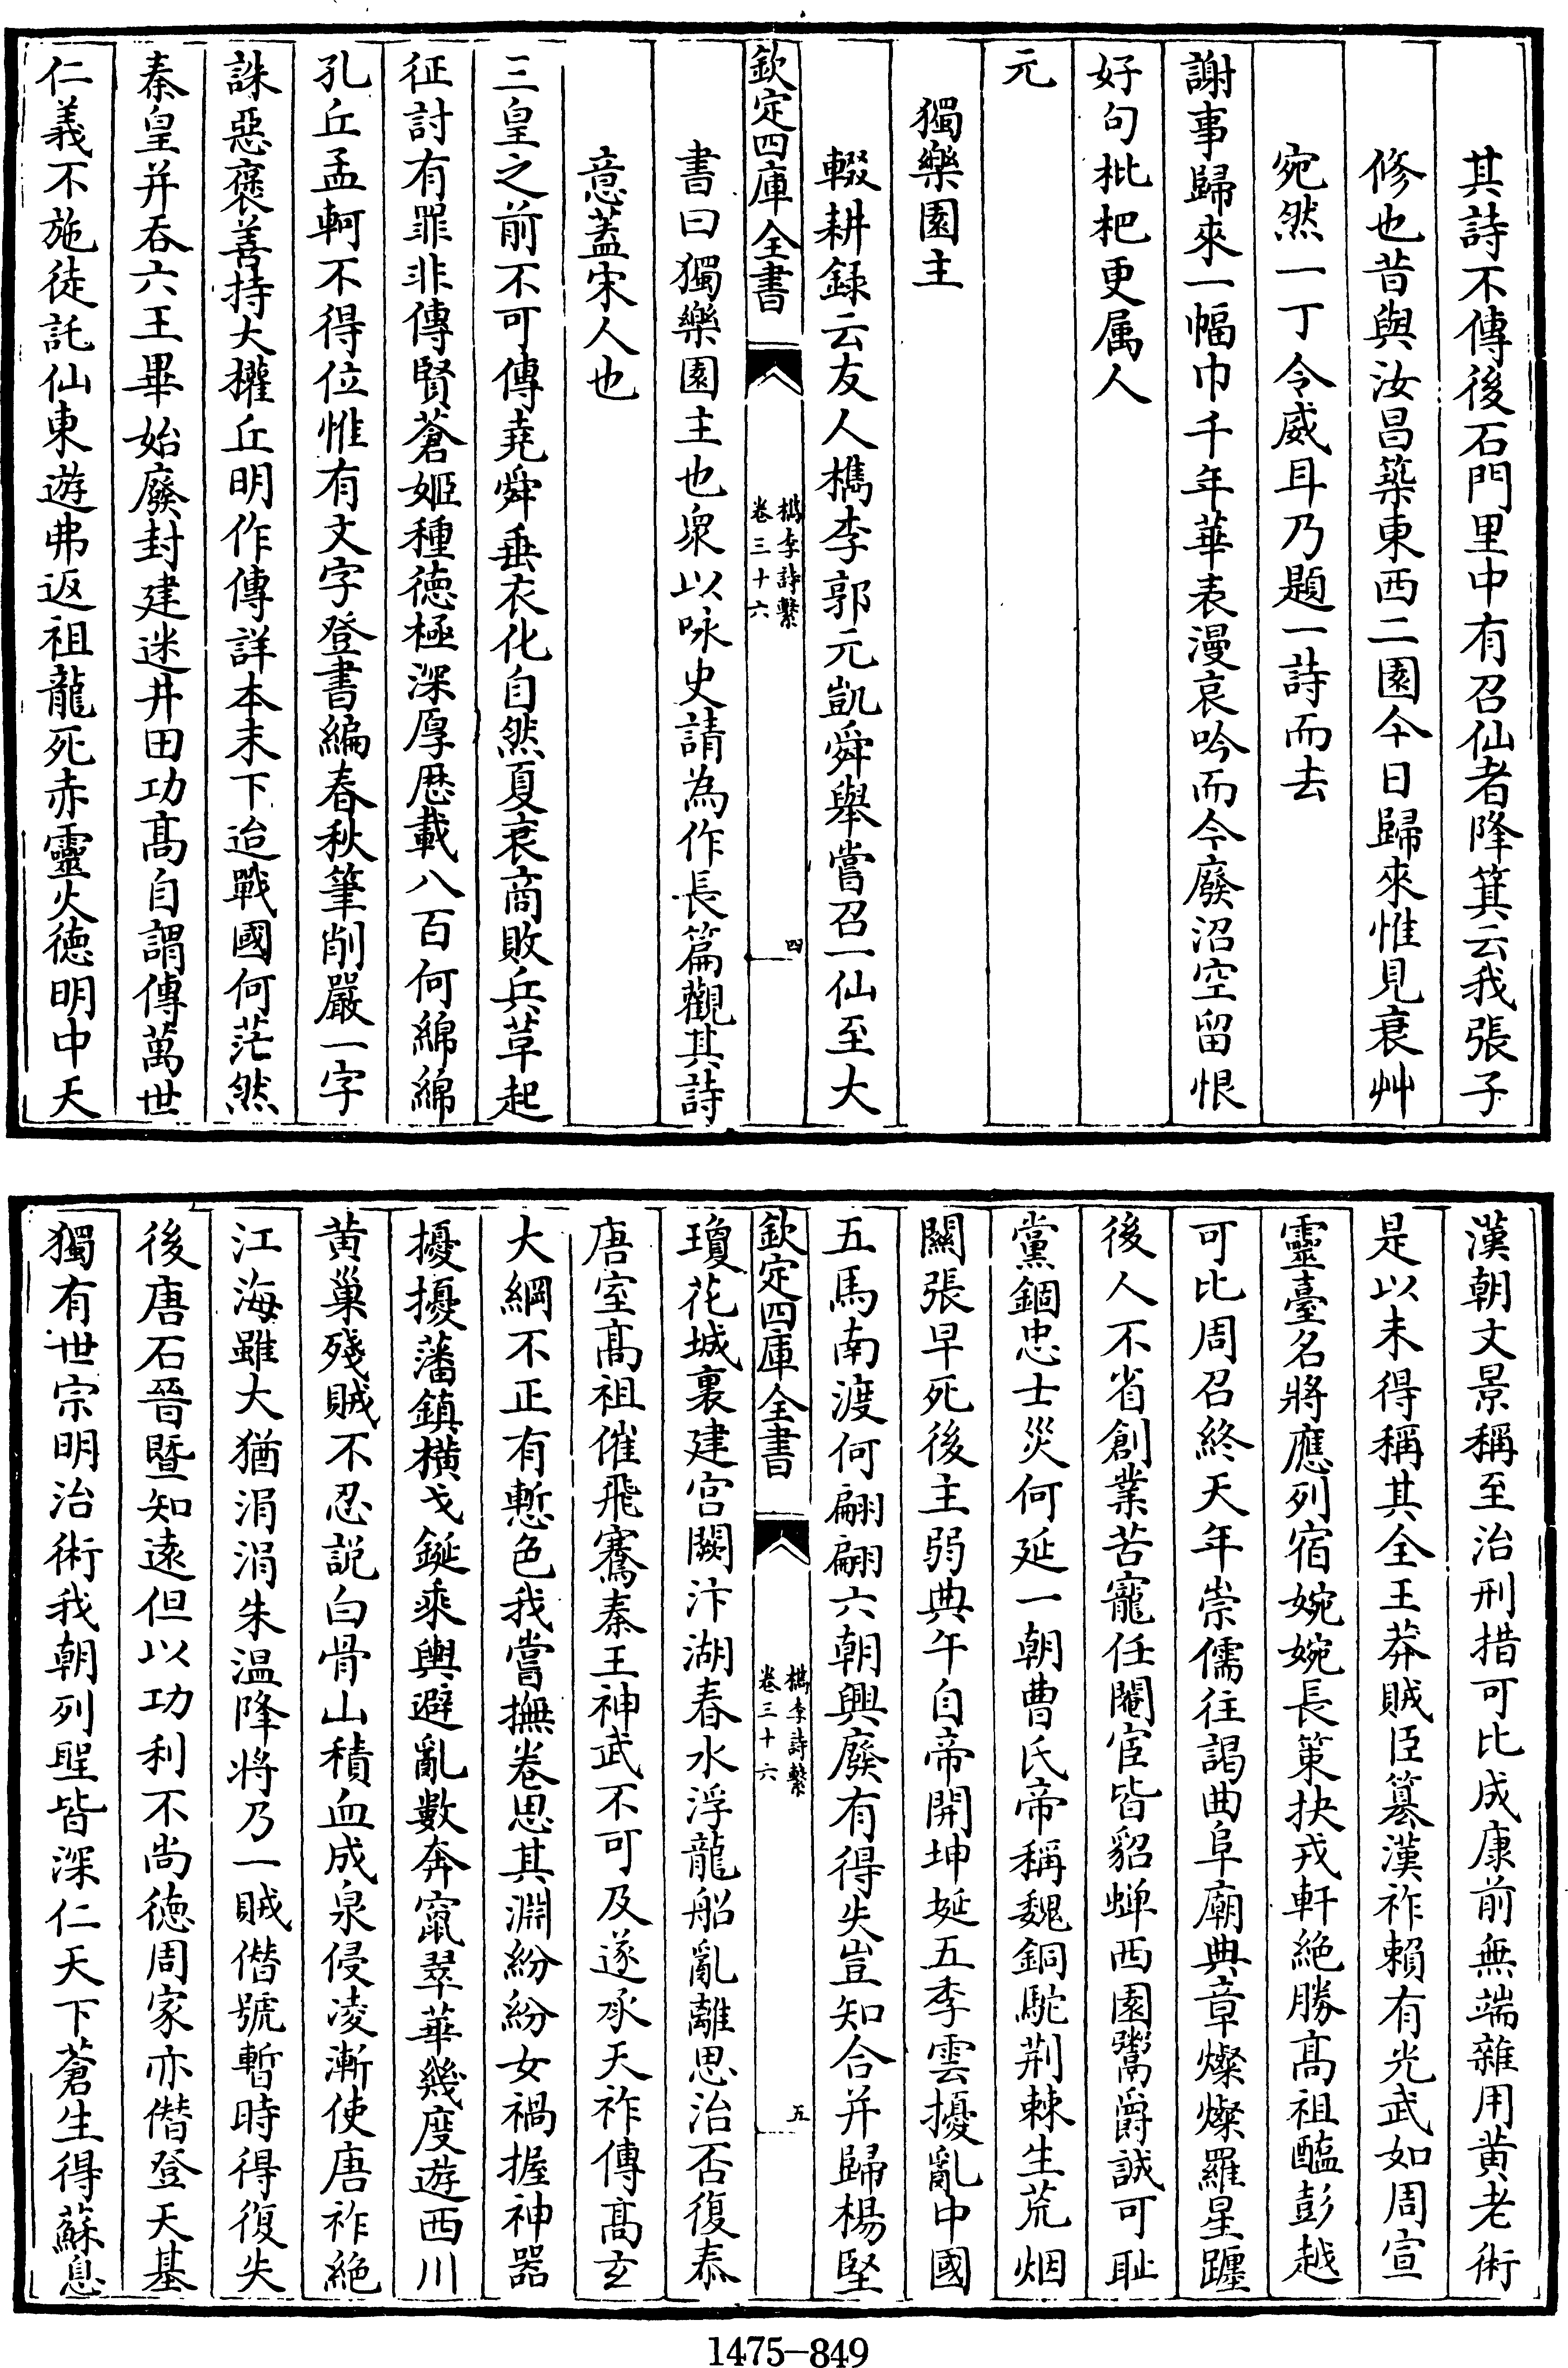 其詩不傳後石門里中有召仙者降箕云我張子
修也昔與汝昌築東西二園今日歸來惟見衰艸
宛然一丁令威耳乃題一詩而去
謝事歸來一幅巾千年華表漫哀吟而今廢沼空留恨
好句枇杷更属人
元
獨樂園主
輟耕録云友人檇李郭元凱舜舉嘗召一仙至大
欽定四庫全書
檇李詩繫
卷三十六
四
書曰獨樂園主也衆以咏史請為作長篇觀其詩
意蓋宋人也
三皇之前不可傳堯舜垂衣化自然夏衰商敗兵草起
征討有罪非傳賢蒼姬種徳極深厚歴載八百何綿綿
孔丘孟軻不得位惟有文字登書編春秋筆削嚴一字
誅惡褒善持大權丘明作傳詳本末下迨戰國何茫然
秦皇并吞六王畢始廢封建迷井田功髙自謂傳萬世
仁義不施徒託仙東遊弗返祖龍死赤靈火徳明中天
漢朝文景稱至治刑措可比成康前無端雜用黄老術
是以未得稱其全王莽賊臣簒漢祚賴有光武如周宣
靈臺名將應列宿婉婉長策抉戎軒絶勝髙祖醢彭越
可比周召終天年崇儒往謁曲阜廟典章燦燦羅星躔
後人不省創業苦寵任閹宦皆貂蝉西園鬻爵誠可耻
黨錮忠士災何延一朝曹氏帝稱魏銅駝荆棘生荒烟
關張早死後主弱典午自帝開坤埏五季雲擾亂中國
五馬南渡何翩翩六朝興廢有得失豈知合并歸楊堅
欽定四庫全書
檇李詩繫
卷三十六
五
瓊花城裏建宫闕汴湖春水浮龍船亂離思治否復泰
唐室髙祖催飛騫秦王神武不可及遂承天祚傳髙玄
大綱不正有慙色我嘗撫卷思其淵紛紛女禍握神器
擾擾藩鎮横戈鋋乘輿避亂數奔竄翠華幾度遊西川
黄巢殘賊不忍説白骨山積血成泉侵凌漸使唐祚絶
江海雖大猶涓涓朱温降將乃一賊僭號暫時得復失
後唐石晉暨知逺但以功利不尚徳周家亦僭登天基
獨有世宗明治術我朝列聖皆深仁天下蒼生得蘇息
1475-849